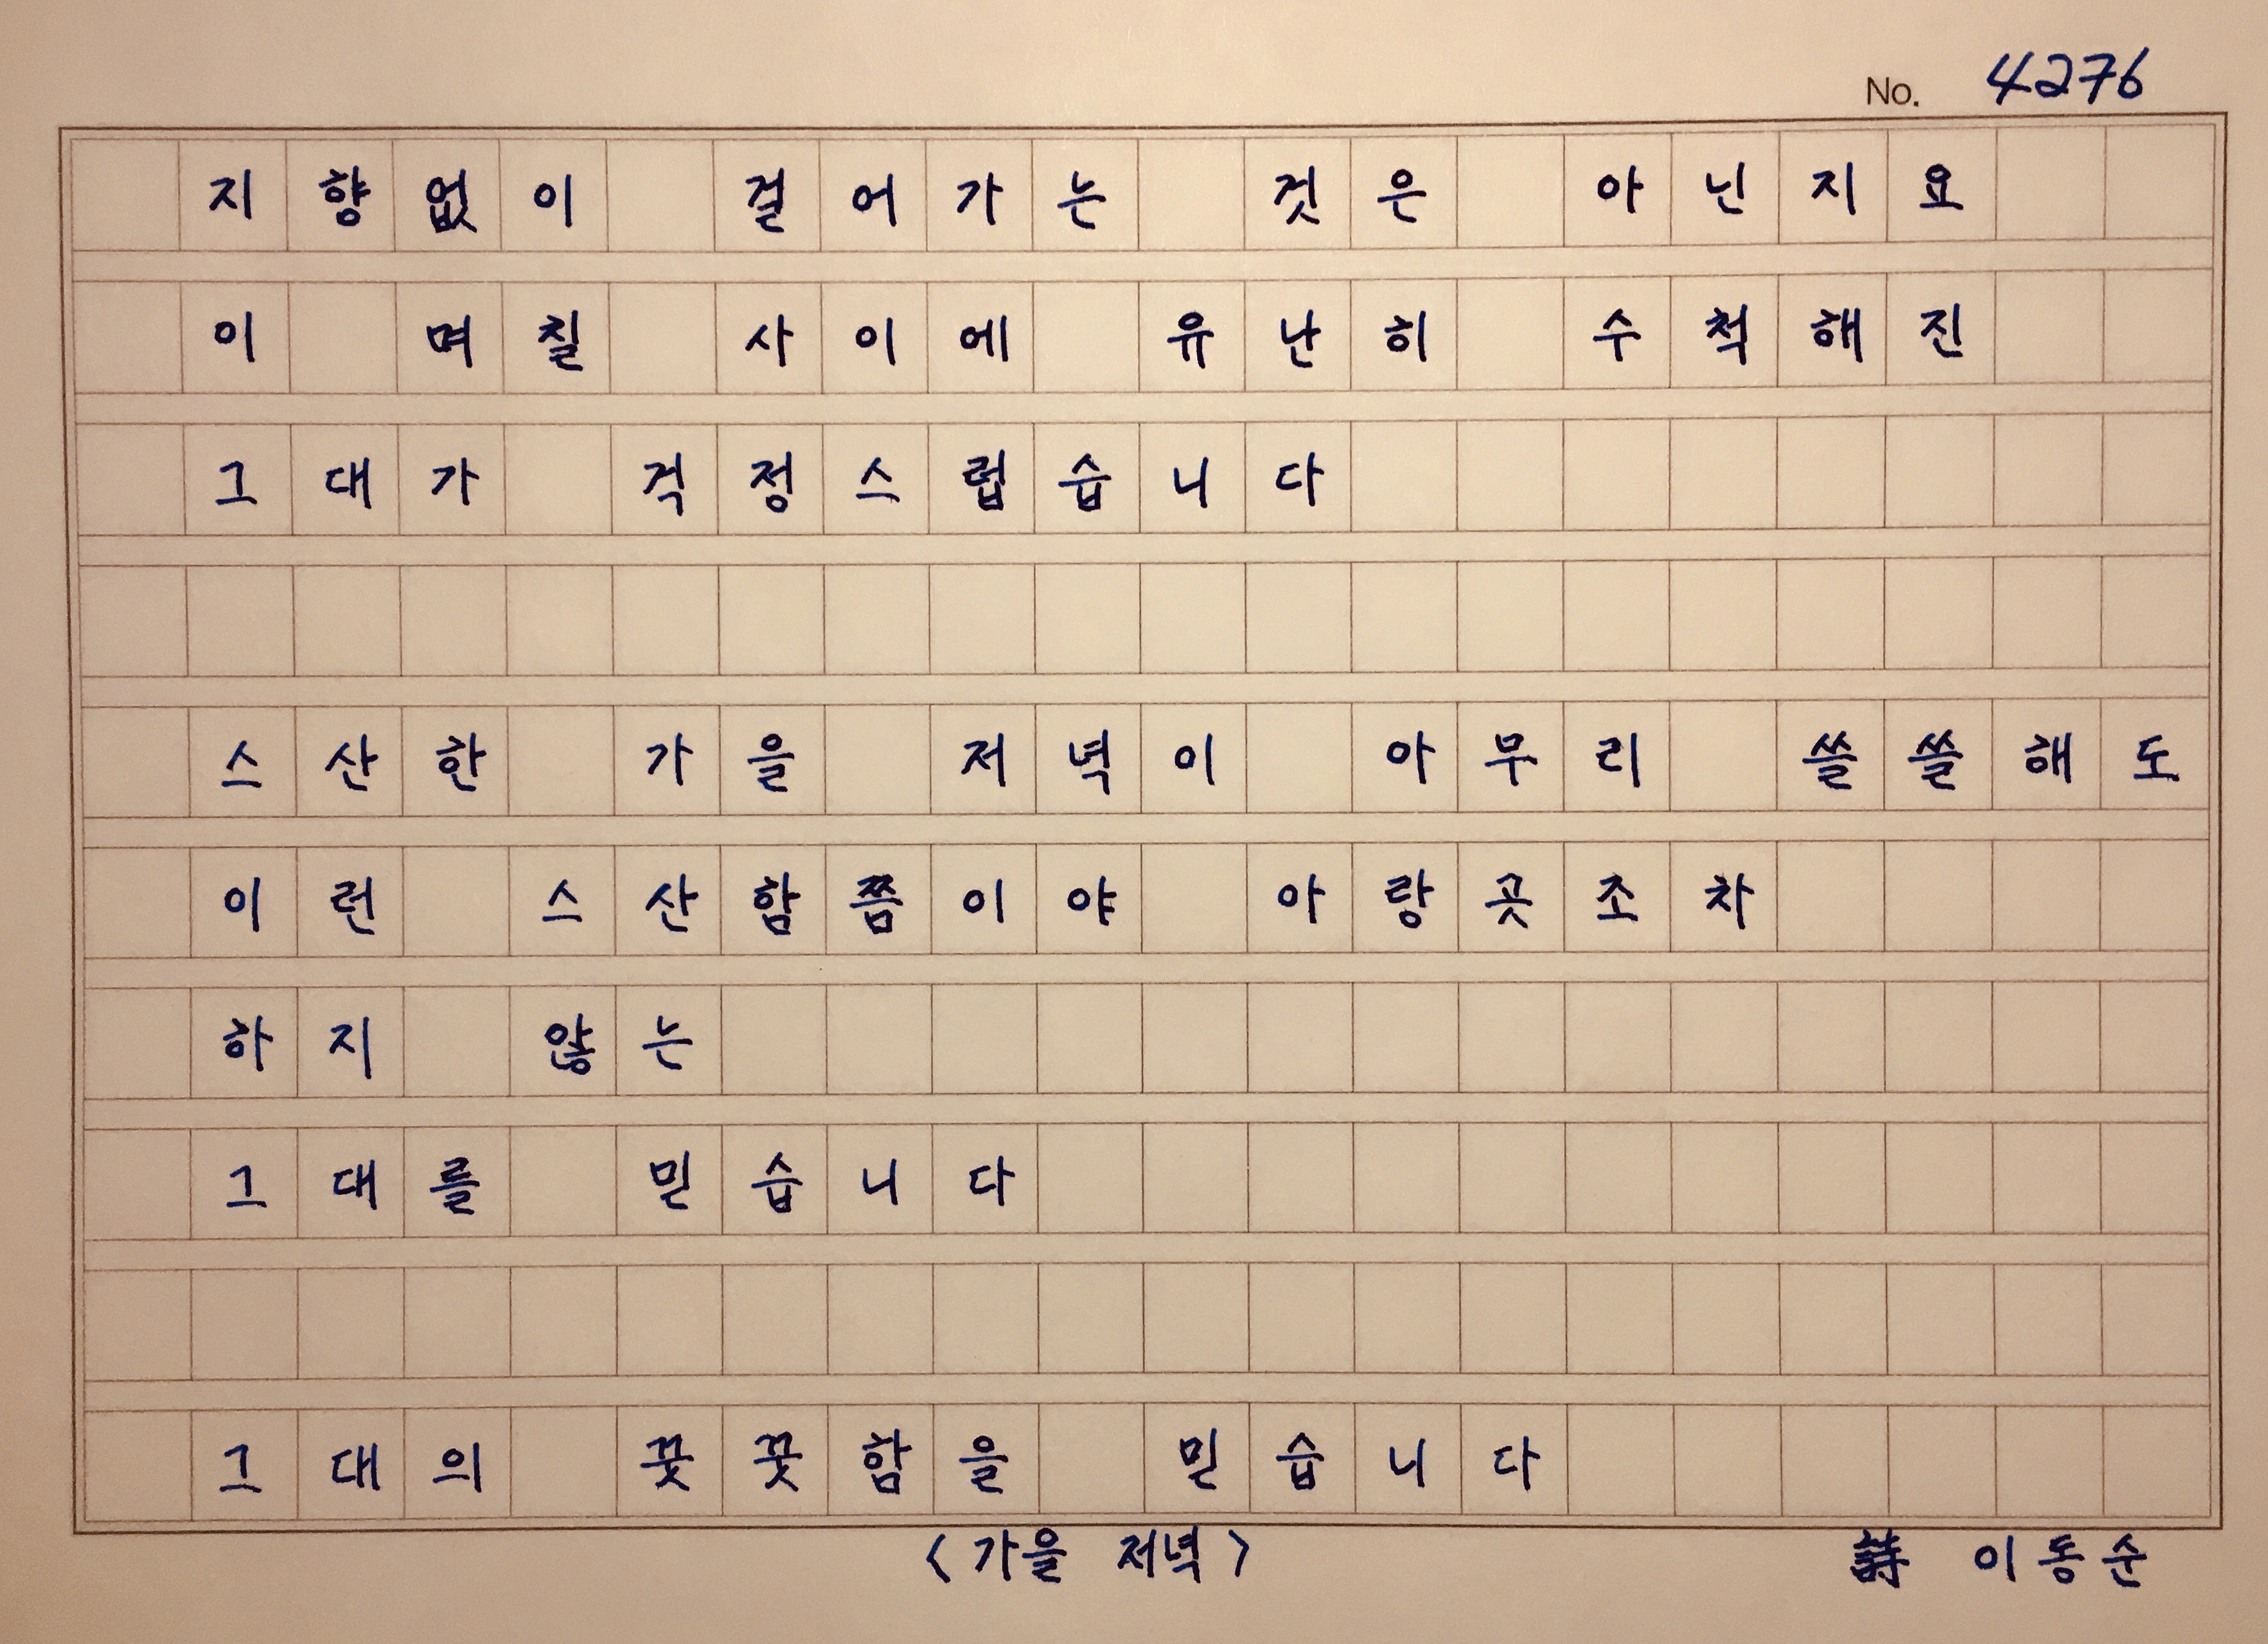 No. 4276
지향없이 걸어가는 것은 아닌지요
이 며칠 사이에 유난히 수척해진
그대가 걱정스럽습니다
스산한 가을 저녁이 아무리 쓸쓸해도
이런 스산함쯤이야 아랑곳조차
하지 않는
그대를 믿습니다
그대의 꿋꿋함을 믿습니다
<가을 저녁> 詩 이동순